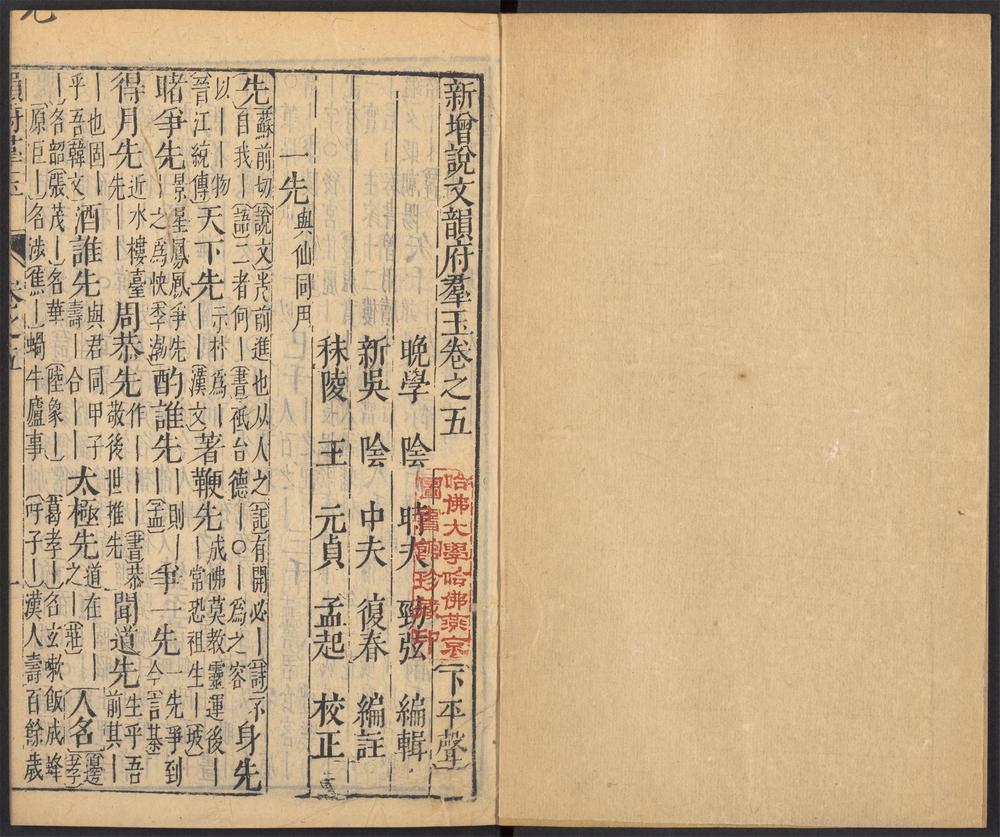 新增說文韻府羣玉卷之五 下平聲
哈佛大學哈佛燕京
圖書館珍藏印
晚學 陰 時夫 勁弦 編輯
新吳 陰 中夫 復春 編註
秣陵 王 元貞 孟起 校正
一先 與仙同用
先 蘇前切說文先前進也从人之記有開必｜詩不自我｜語二者何｜書祗台德｜○｜爲之容 身先
以｜物晉江統傳 天下先 ｜示朴爲｜｜漢文 著鞭先 成佛莫教靈運後｜｜常恐祖生｜坡
睹爭先 景星鳳凰爭先｜之爲快季渤 酌誰先 ｜則｜孟 爭一先 一先爭到今言棊
得月先 近水樓臺先｜｜ 周恭先 作｜｜書恭敬後世推先 聞道先 生乎吾前其｜
｜也固｜｜乎吾韓文 酒誰先 與君同甲子壽｜合｜ 太極先 道在｜｜｜之｜莊 人名 邊孝
｜名韶張茂｜名華陸象｜葛孝｜名玄嗽飯成蜂
原巨｜名涉焦｜蝸牛廬事吁子｜漢人壽百餘歲
韻府羣玉 卷之五 一